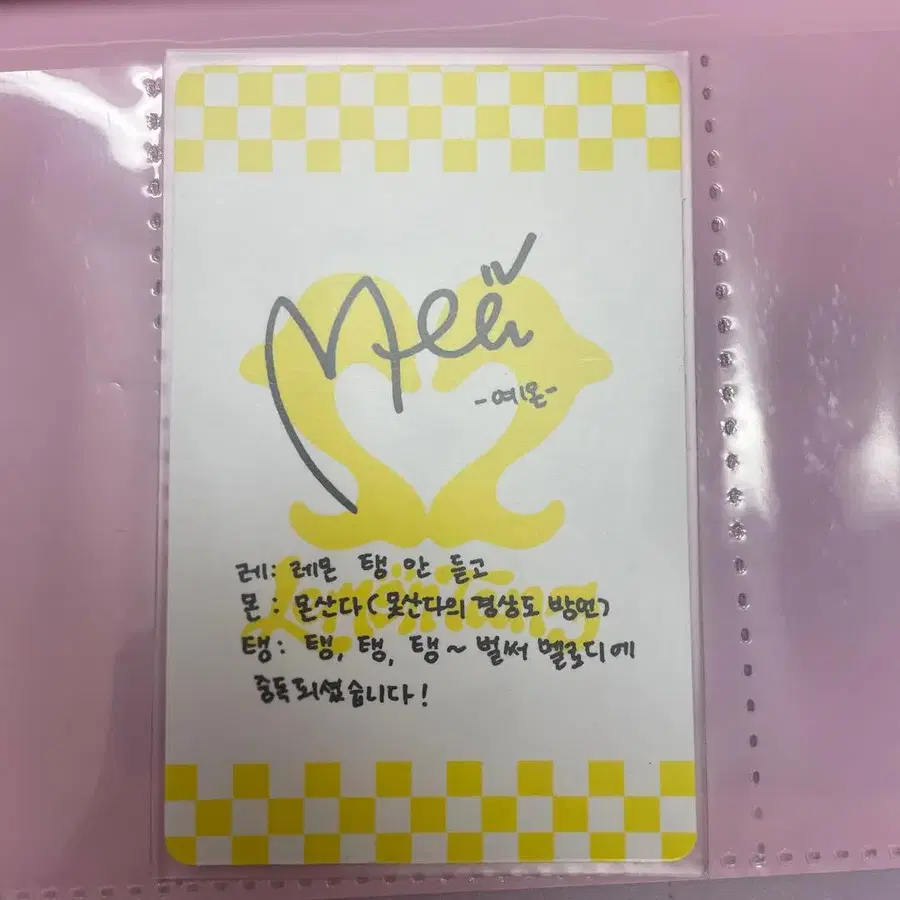 -예온-
레: 레몬 탱 안 듣고
몬: 몬산다(못산다의 경상도 방언)
탱: 탱, 탱, 탱~ 벌써 멜로디에
중독되셨습니다!
Lemon Tang